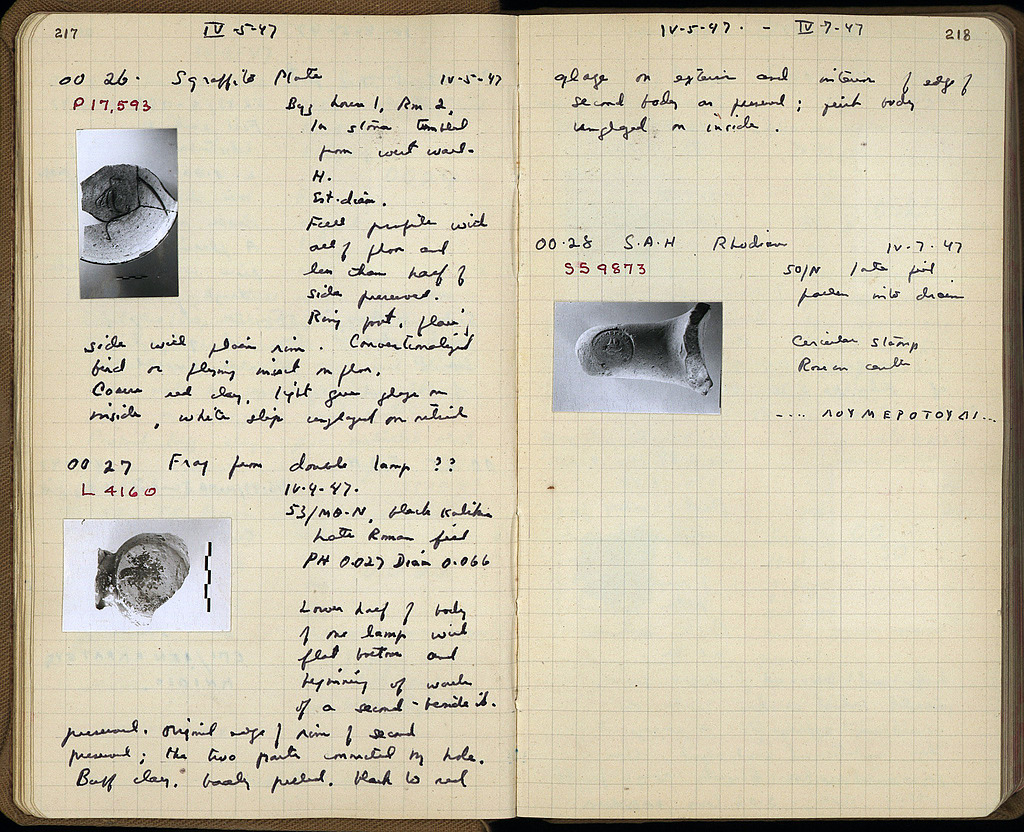 217
IV-5-47
OO 26. Sgraffito Plate IV-5-47
P 17,593
Byz house 1, Rm 2,
In stone tumbled
from west wall.
H.
Est. diam.
Full profile with
all of floor and
less than half of
side preserved.
Ring foot, flaring
side with plain rim. Conventionalized
bird or flying insect on floor.
Coarse red clay, light green glaze on
inside, white slip unglazed on outside
OO 27 Frag from double lamp ??
L 4160
IV-4-47.
53/ΜΘ-Ν, black
Late Roman fill
PH 0.027 Diam 0.066
Lower half of body
of one lamp with
flat bottom and
beginning of wall
of a second beside it.
preserved. Original edge of rim of second
preserved; the two parts connected by hole.
Buff clay, badly peeled. black to red
IV-5-47. - IV-7-47
218
glaze on exterior and interior of edge of
second body as preserved; first body
unglazed on inside.
OO.28 S.A.H Rhodian IV-7-47
SS 9873
50/N late fill
fallen into drain
Circular stamp
Rose in center
.... ΛΟΥΜΕΡΟΤΟΥΔΙ...